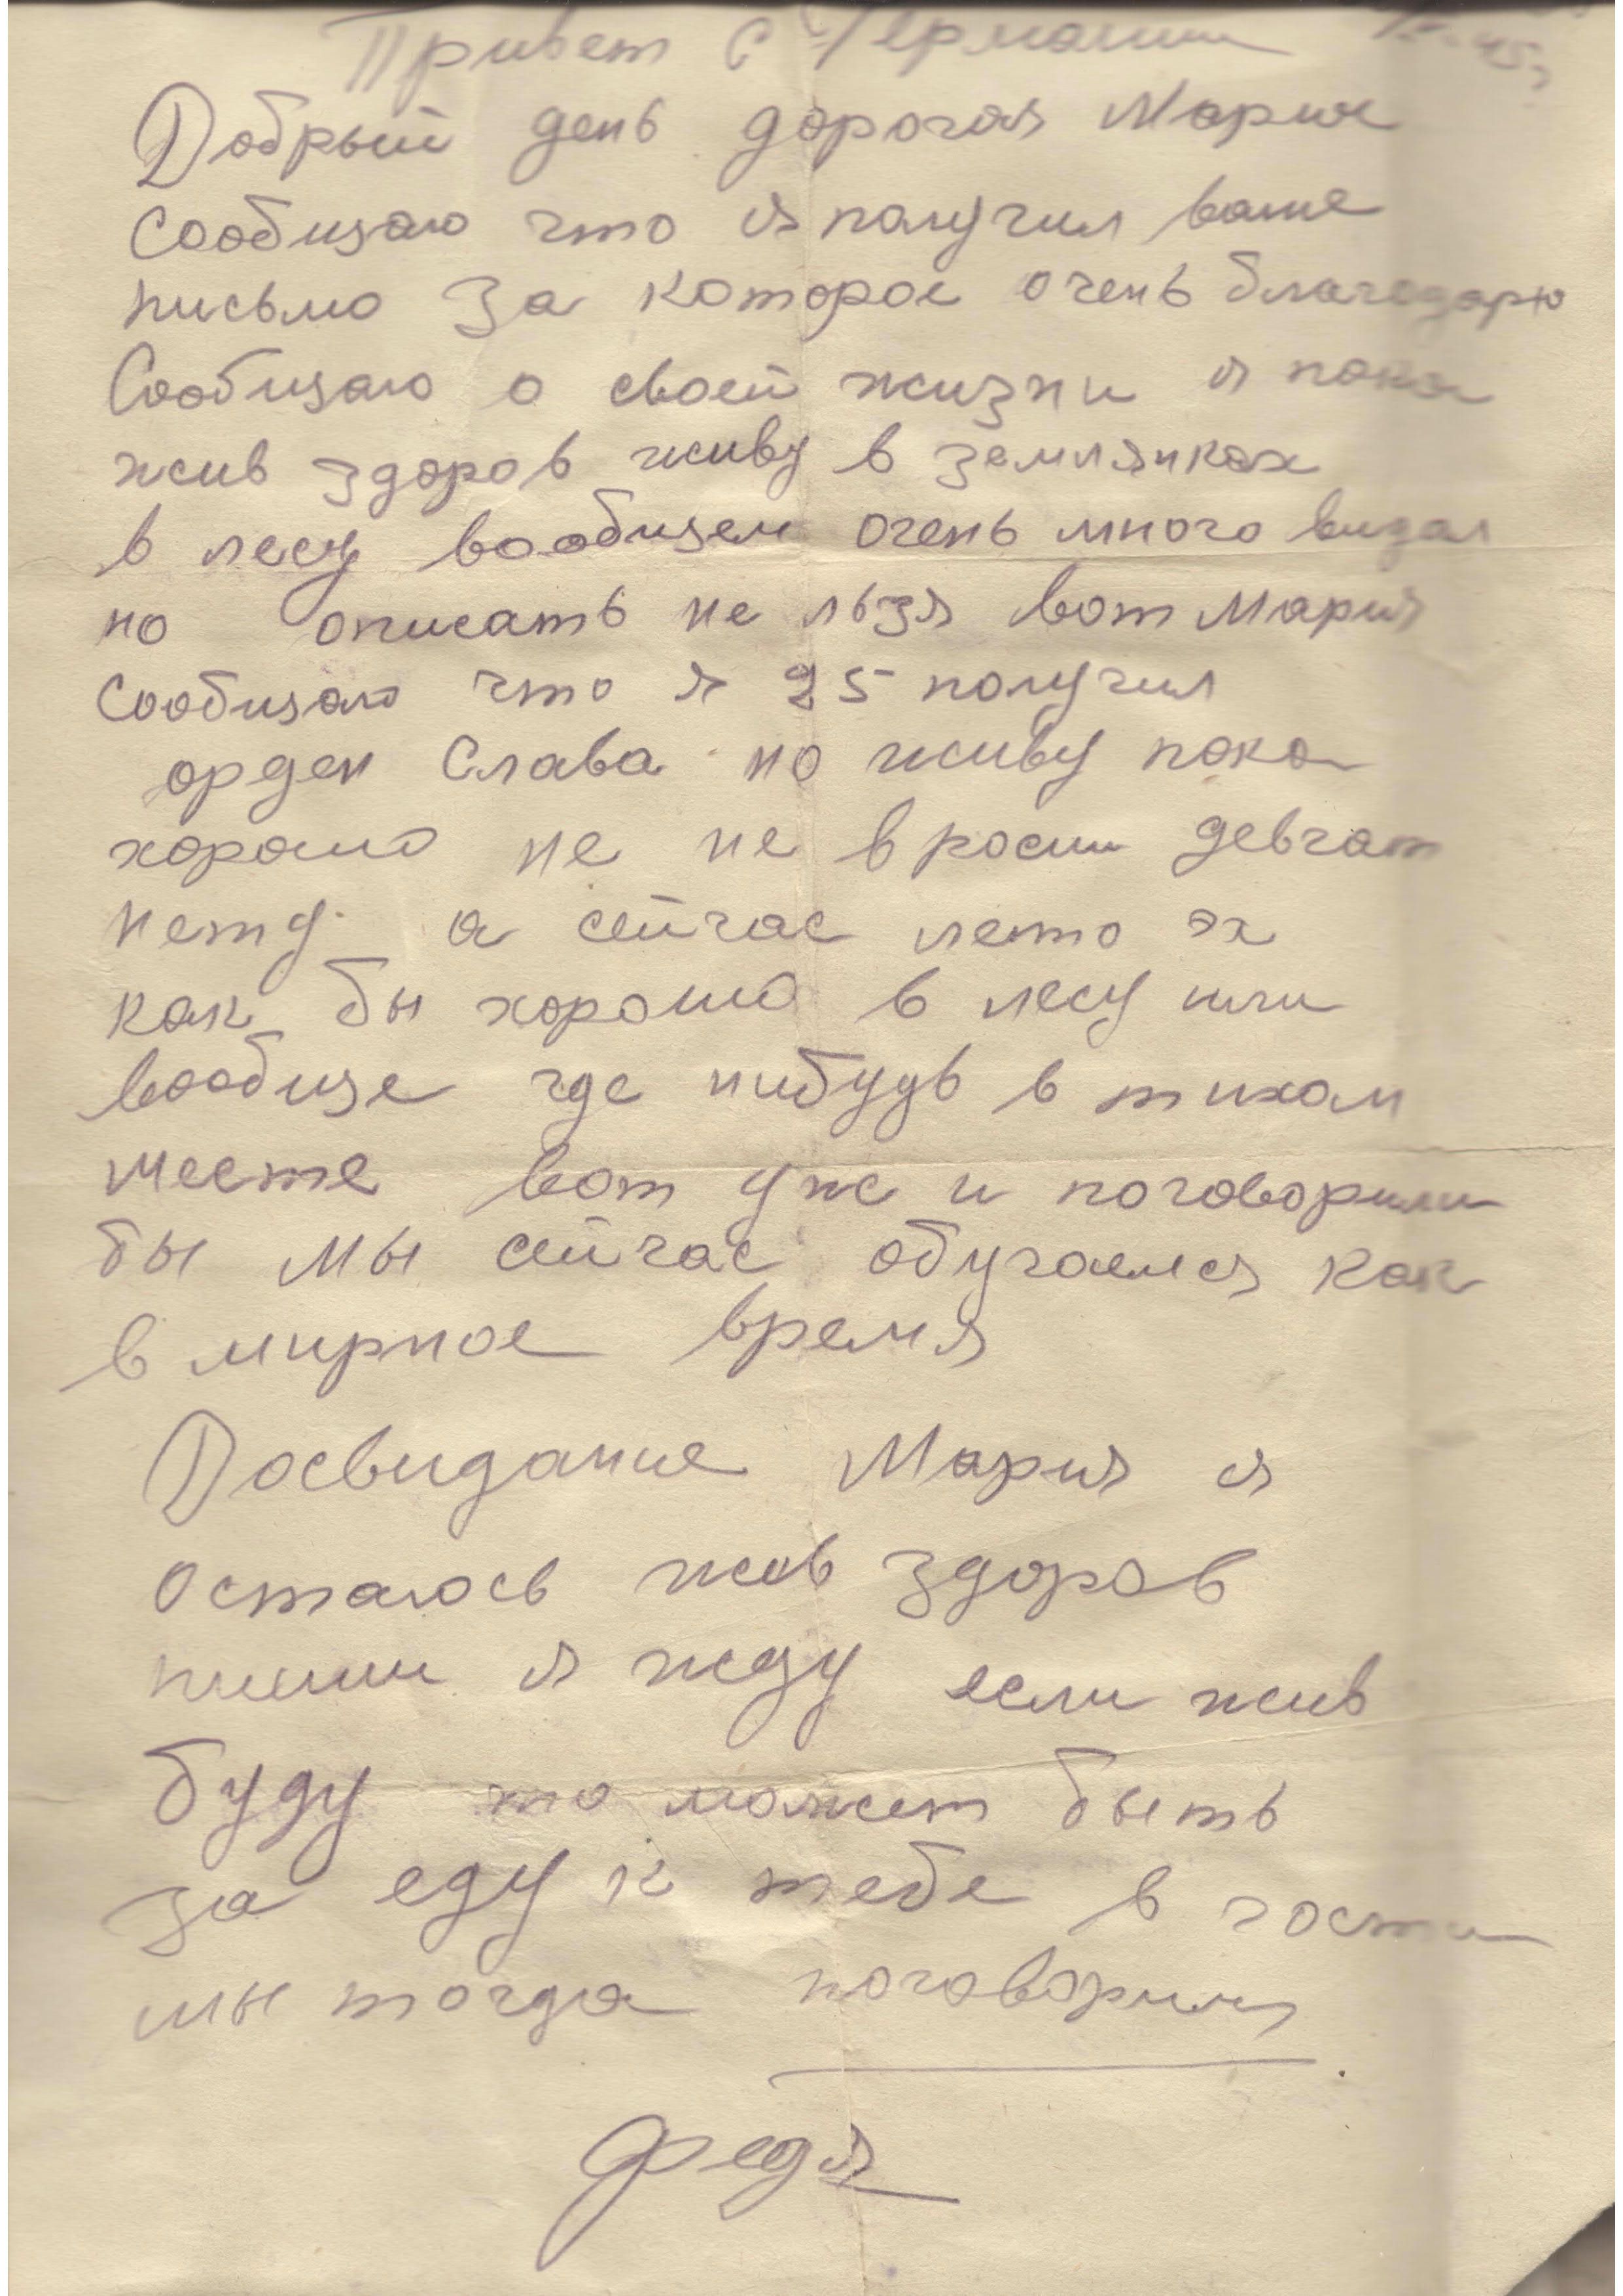 Привет с Германии 45г
Добрый день дорогая Мария
Сообщаю что я получил ваше
письмо за которое очень благодарю
Сообщаю о своей жизни я пока
жив здоров живу в землянках
в лесу вообщем очень много видал
но описать не льзя вот Мария
Сообщаю что я 25 получил
орден Слава но живу пока
хорошо не не в росии девчат
нету а сейчас лето эх
как бы хорошо в лесу или
вообще где нибудь в тихом
месте вот уже и поговорили
бы мы сейчас обучаемся как
в мирное время
Досвидание Мария я
остаюсь жив здоров
пиши я жду если жив
буду то может быть
за еду к тебе в гости
мы тогда поговорим
Федя